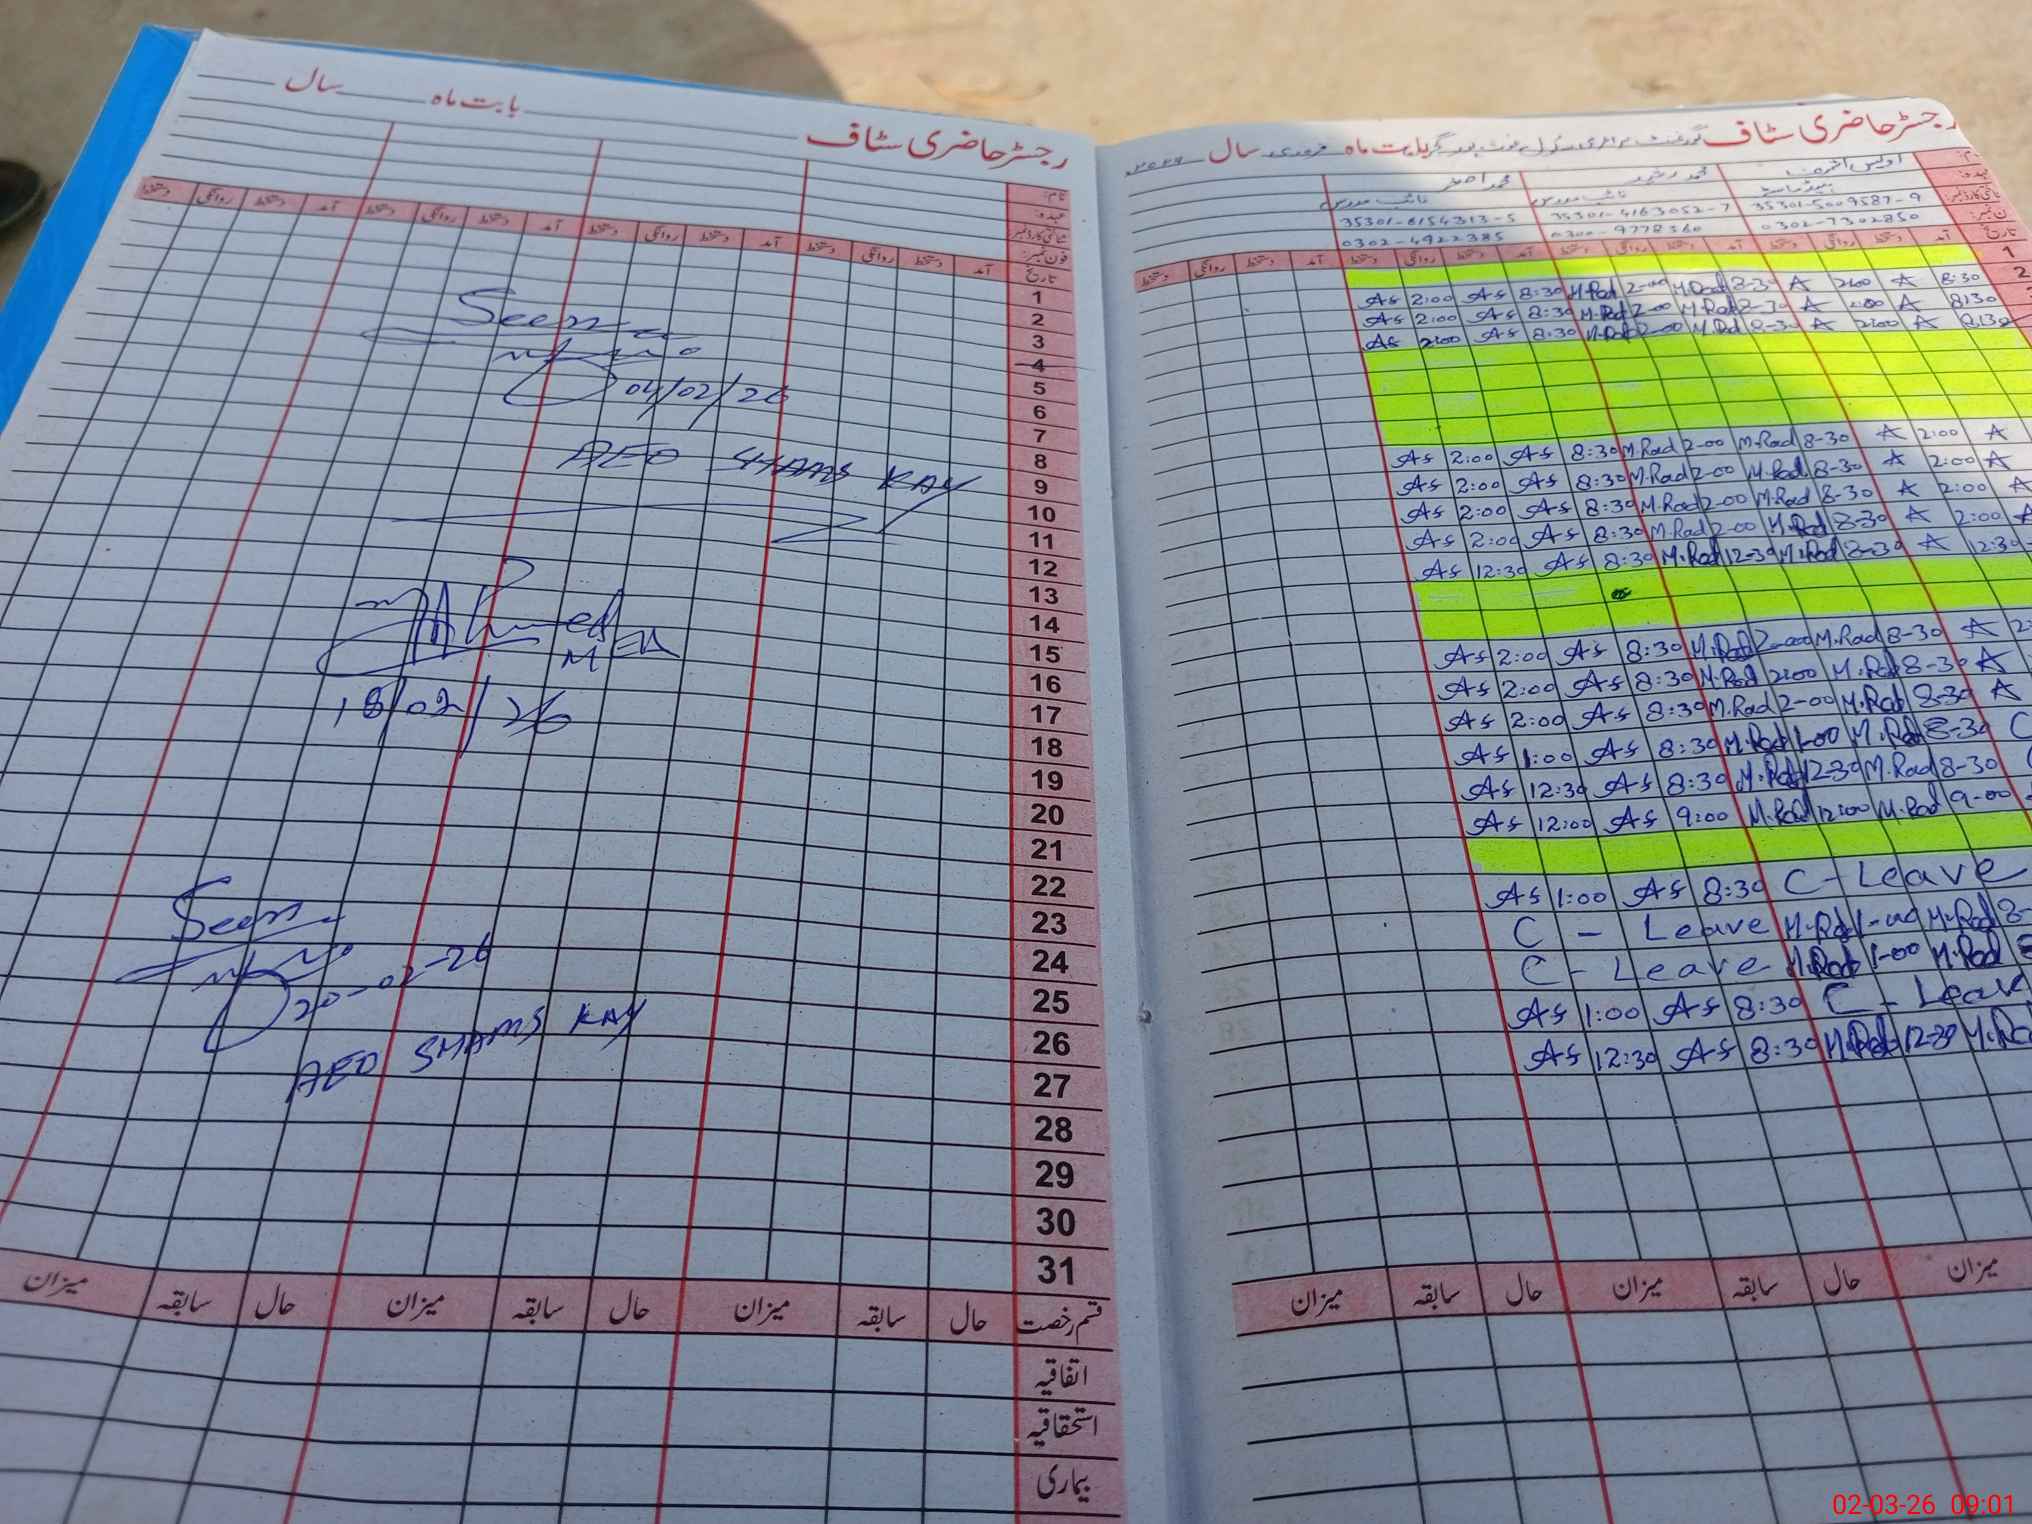 رجسٹر حاضری سٹاف بابت ماہ سال
نام:
عہدہ:
شناختی کارڈ نمبر:
فون نمبر:
تاریخ آمد دستخط روانگی دستخط آمد دستخط روانگی دستخط آمد دستخط روانگی دستخط
1
2
3
4
5
6
7
8
9
10
11
12
13
14
15
16
17
18
19
20
21
22
23
24
25
26
27
28
29
30
31
Seen
04/02/26
AEO SHAMS KAY
M Ahmed
MEA
18/02/26
Seen
20-02-26
AEO SHAMS KAY
قسم رخصت حال سابقہ میزان حال سابقہ میزان حال سابقہ میزان
اتفاقیہ
استحقاقیہ
بیماری
رجسٹر حاضری سٹاف گورنمنٹ پرائمری سکول بابت ماہ فروری سال ۲۰۲۶
محمد رشید محمد اصغر
ہیڈ ماسٹر نائب مدرس نائب مدرس
35301-5009587-9 35301-4163052-7 35301-6154313-5
0302-7302850 0300-9778360 0302-4922385
تاریخ آمد دستخط روانگی دستخط آمد دستخط روانگی دستخط آمد دستخط روانگی دستخط آمد دستخط روانگی دستخط
1
2
As 2:00 As 8:30 M.Rad 2-00 M.Rad 8-30 A 2:00 A 8:30
As 2:00 As 8:30 M.Rad 2-00 M.Rad 8-30 A 2:00 A 8:30
As 2:00 As 8:30 M.Rad 2-00 M.Rad 8-30 A 2:00 A 8:30
As 2:00 As 8:30 M.Rad 2-00 M.Rad 8-30 A 2:00 A
As 2:00 As 8:30 M.Rad 2-00 M.Rad 8-30 A 2:00 A
As 2:00 As 8:30 M.Rad 2-00 M.Rad 8-30 A 2:00 A
As 2:00 As 8:30 M.Rad 2-00 M.Rad 8-30 A 2:00 A
As 12:30 As 8:30 M.Rad 12-30 M.Rad 8-30 A 12:30
As 2:00 As 8:30 M.Rad 2-00 M.Rad 8-30 A
As 2:00 As 8:30 M.Rad 2:00 M.Rad 8-30 A
As 2:00 As 8:30 M.Rad 2-00 M.Rad 8-30 A
As 1:00 As 8:30 M.Rad 1-00 M.Rad 8-30 C
As 12:30 As 8:30 M.Rad 12-30 M.Rad 8-30
As 12:00 As 9:00 M.Rad 12:00 M.Rad 9-00
As 1:00 As 8:30 C-Leave
C - Leave M.Rad 1-00 M.Rad
C - Leave M.Rad 1-00 M.Rad
As 1:00 As 8:30 C - Leave
As 12:30 As 8:30 M.Rad 12-30
میزان حال سابقہ میزان حال سابقہ میزان
02-03-26 09:01